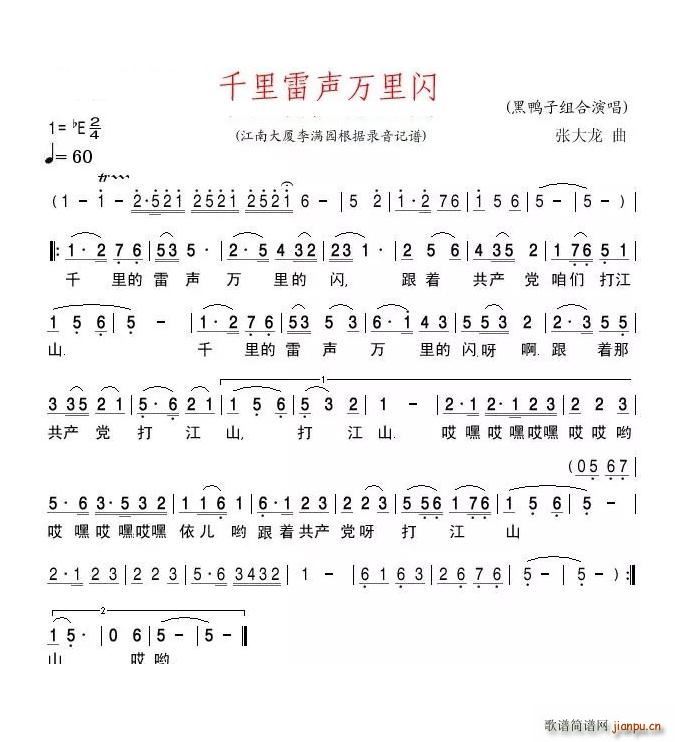 千里雷声万里闪
(黑鸭子组合演唱)
1=♭E 2/4
(江南大厦李满园根据录音记谱)
张大龙 曲
♩=60
(1 - | 1 - | 2·521 2521 | 2521 2521 | 6 - | 5 2 | 1·2 76 | 1 65 | 5 - | 5 - ) |
‖: 1·2 76 | 53 5· | 2·5 432 | 23 1· | 2 5 6 | 435 2 | 176 51 |
千 里的 雷 声 万 里的 闪, 跟 着 共产 党 咱们 打江
1 5 6 | 5 - | 1·2 76 | 53 5 | 6·1 43 | 5 5 3 | 2·3 5 5 |
山. 千 里的 雷 声 万 里的 闪呀 啊.跟 着那
1
3 35 21 | 5·6 21 | 1 5 6 | 5·6 21 | 1 - | 2·1 2 | 2·1 2 3 | 2 1 2 |
共产 党 打 江 山, 打 江 山. 哎 嘿 哎嘿 哎嘿 哎哎 哟
(05 67
5·6 | 3·5 32 | 1 1 6 | 6·1 2 3 | 2 2 3 | 5 56 176 | 1 5 6 | 5 - ) |
哎 嘿 哎 嘿 哎嘿 依儿 哟 跟着 共产 党呀 打 江 山
2·1 | 2 2 3 | 2 2 3 | 5·6 3432 | 1 - | 6 1 6 3 | 2 6 7 6 | 5 - ) :‖
2
1 5· | 0 6 | 5 - | 5 - ‖
山 哎 哟
歌谱简谱网
jianpu.cn